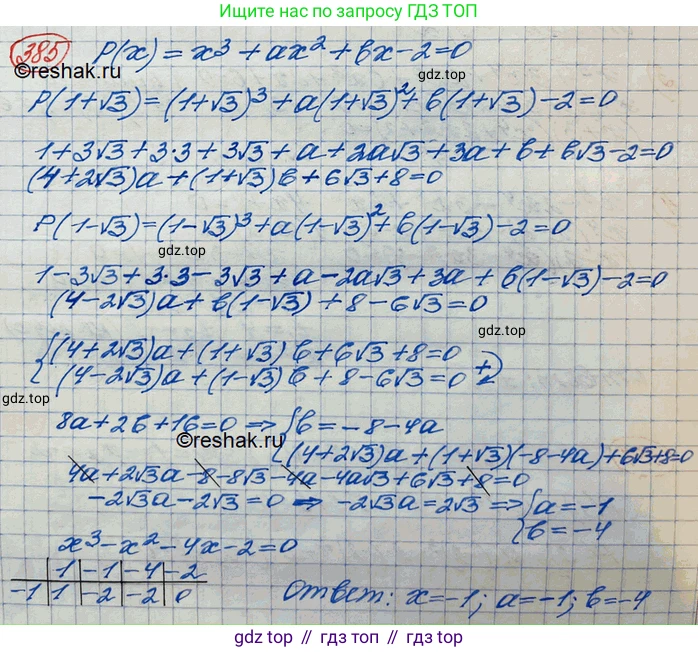 Больше решений по запросу ГДЗ ТОП
385 P(x) = x³ + ax² + bx - 2 = 0
©reshak.ru
gdz.top
P(1+√3) = (1+√3)³ + a(1+√3)² + b(1+√3) - 2 = 0
1 + 3√3 + 3·3 + 3√3 + a + 2a√3 + 3a + b + b√3 - 2 = 0
(4+2√3)a + (1+√3)b + 6√3 + 8 = 0
P(1-√3) = (1-√3)³ + a(1-√3)² + b(1-√3) - 2 = 0
gdz.top
gdz.top
1 - 3√3 + 3·3 - 3√3 + a - 2a√3 + 3a + b(1-√3) - 2 = 0
(4-2√3)a + b(1-√3) + 8 - 6√3 = 0
gdz.top
{(4+2√3)a + (1+√3)b + 6√3 + 8 = 0
(4-2√3)a + (1-√3)b + 8 - 6√3 = 0 +
gdz.top
8a + 2b + 16 = 0 ⇒ {b = -8 - 4a
©reshak.ru
(4+2√3)a + (1+√3)(-8-4a) + 6√3 + 8 = 0
4a + 2√3a - 8 - 8√3 - 4a - 4a√3 + 6√3 + 8 = 0
-2√3a - 2√3 = 0 ⇒ -2√3a = 2√3 ⇒ {a = -1
b = -4
x³ - x² - 4x - 2 = 0
1 -1 -4 -2
-1 1 -2 -2 0
Ответ: x = -1; a = -1; b = -4
gdz.top // гдз.топ // gdz.top